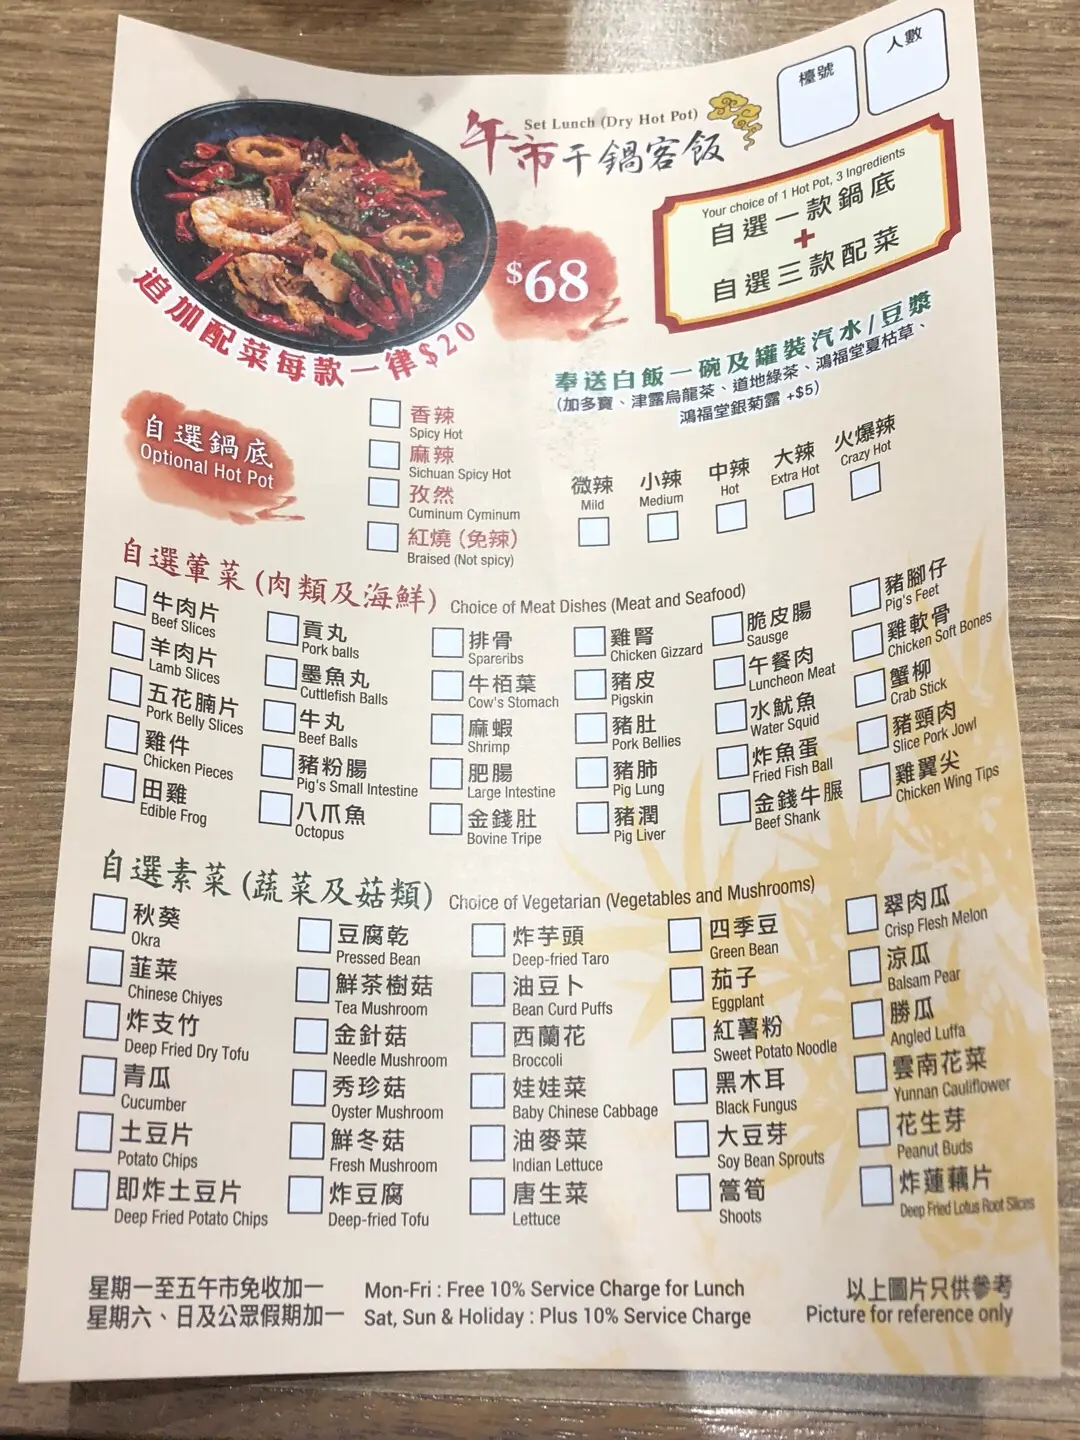 檯號
人數
Set Lunch (Dry Hot Pot)
午市干鍋客飯
Your choice of 1 Hot Pot, 3 Ingredients
自選一款鍋底
+
自選三款配菜
$68
追加配菜每款一律$20
奉送白飯一碗及罐裝汽水/豆漿
(加多寶、津露烏龍茶、道地綠茶、鴻福堂夏枯草、
鴻福堂銀菊露 +$5)
自選鍋底
Optional Hot Pot
香辣
Spicy Hot
麻辣
Sichuan Spicy Hot
孜然
Cuminum Cyminum
紅燒 (免辣)
Braised (Not spicy)
微辣
Mild
小辣
Medium
中辣
Hot
大辣
Extra Hot
火爆辣
Crazy Hot
自選葷菜 (肉類及海鮮) Choice of Meat Dishes (Meat and Seafood)
牛肉片
Beef Slices
羊肉片
Lamb Slices
五花腩片
Pork Belly Slices
雞件
Chicken Pieces
田雞
Edible Frog
貢丸
Pork balls
墨魚丸
Cuttlefish Balls
牛丸
Beef Balls
豬粉腸
Pig's Small Intestine
八爪魚
Octopus
排骨
Spareribs
牛栢葉
Cow's Stomach
麻蝦
Shrimp
肥腸
Large Intestine
金錢肚
Bovine Tripe
雞腎
Chicken Gizzard
豬皮
Pigskin
豬肚
Pork Bellies
豬肺
Pig Lung
豬潤
Pig Liver
脆皮腸
Sausge
午餐肉
Luncheon Meat
水魷魚
Water Squid
炸魚蛋
Fried Fish Ball
金錢牛𦟌
Beef Shank
豬腳仔
Pig's Feet
雞軟骨
Chicken Soft Bones
蟹柳
Crab Stick
豬頸肉
Slice Pork Jowl
雞翼尖
Chicken Wing Tips
自選素菜 (蔬菜及菇類) Choice of Vegetarian (Vegetables and Mushrooms)
秋葵
Okra
韮菜
Chinese Chiyes
炸支竹
Deep Fried Dry Tofu
青瓜
Cucumber
土豆片
Potato Chips
即炸土豆片
Deep Fried Potato Chips
豆腐乾
Pressed Bean
鮮茶樹菇
Tea Mushroom
金針菇
Needle Mushroom
秀珍菇
Oyster Mushroom
鮮冬菇
Fresh Mushroom
炸豆腐
Deep-fried Tofu
炸芋頭
Deep-fried Taro
油豆卜
Bean Curd Puffs
西蘭花
Broccoli
娃娃菜
Baby Chinese Cabbage
油麥菜
Indian Lettuce
唐生菜
Lettuce
四季豆
Green Bean
茄子
Eggplant
紅薯粉
Sweet Potato Noodle
黑木耳
Black Fungus
大豆芽
Soy Bean Sprouts
篙筍
Shoots
翠肉瓜
Crisp Flesh Melon
涼瓜
Balsam Pear
勝瓜
Angled Luffa
雲南花菜
Yunnan Cauliflower
花生芽
Peanut Buds
炸蓮藕片
Deep Fried Lotus Root Slices
星期一至五午市免收加一 Mon-Fri : Free 10% Service Charge for Lunch
星期六、日及公眾假期加一 Sat, Sun & Holiday : Plus 10% Service Charge
以上圖片只供參考
Picture for reference only